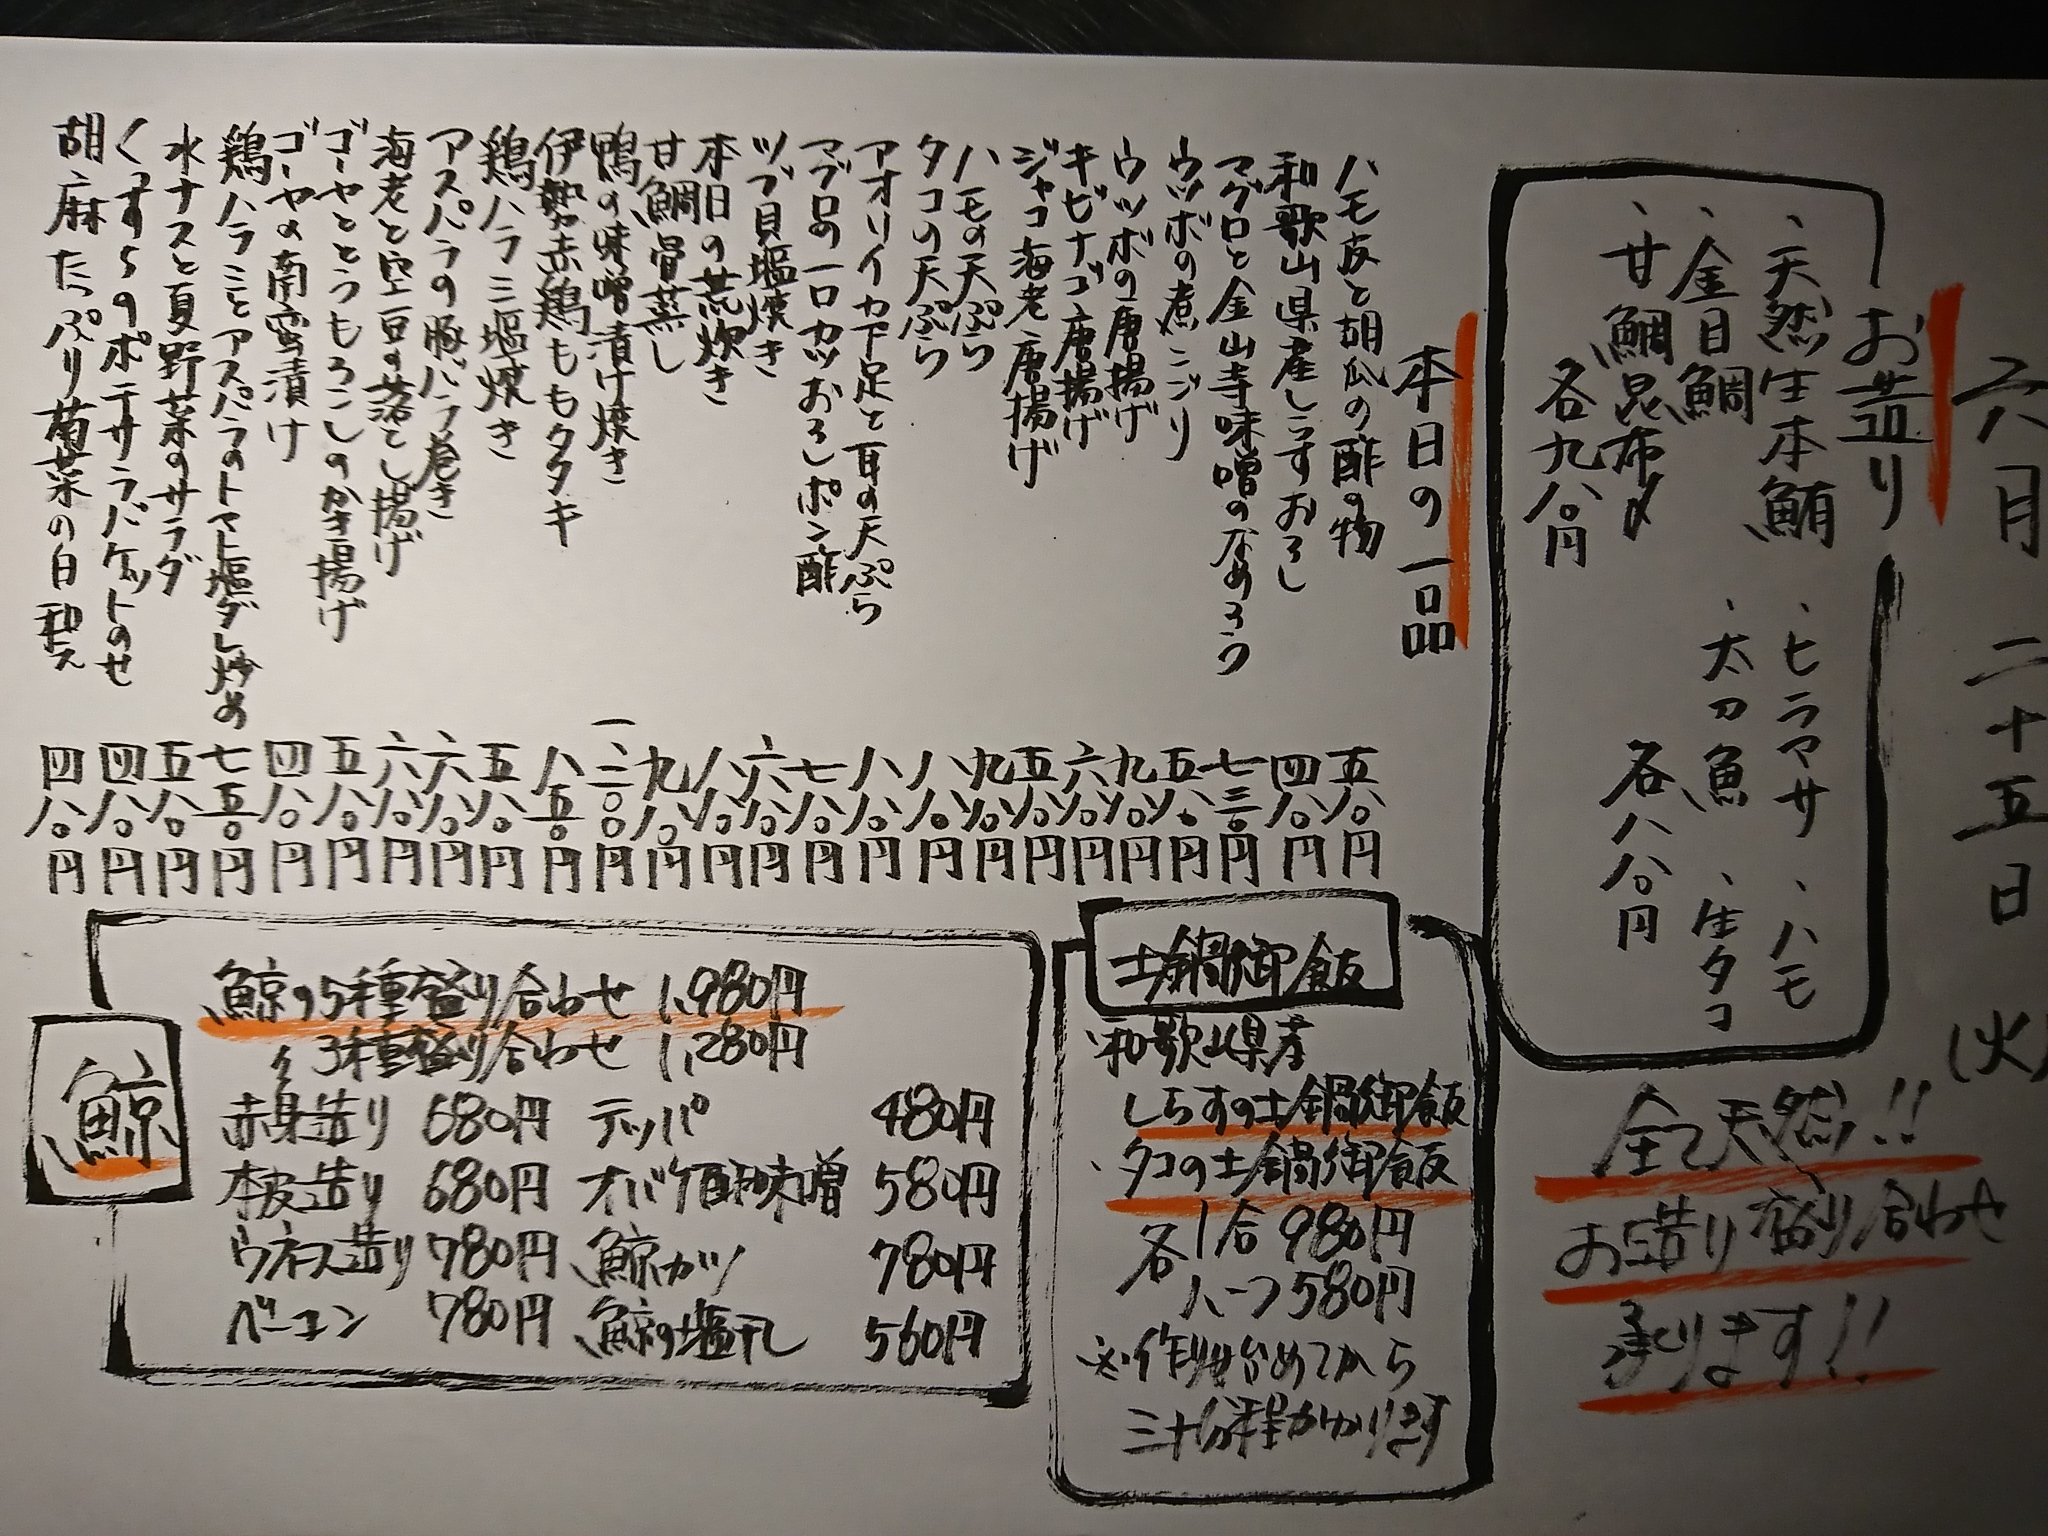 六月 二十五日 (火)
お造り
、天然生本鮪 、ヒラマサ 、ハモ
、金目鯛 、太刀魚 、生タコ
、甘鯛昆布〆
各九八〇円 各八八〇円
全て天然!!
お造り盛り合わせ
承ります!!
本日の一品
ハモ皮と胡瓜の酢の物 五八〇円
和歌山県産しらすおろし 四八〇円
マグロと金山寺味噌のなめろう 七三〇円
ウツボの煮こごり 五八〇円
ウツボの唐揚げ 九八〇円
キビナゴ唐揚げ 六八〇円
ジャコ海老唐揚げ 五八〇円
ハモの天ぷら 九八〇円
タコの天ぷら 八八〇円
アオリイカ下足と耳の天ぷら 八八〇円
マグロの一口カツおろしポン酢 七八〇円
ツブ貝塩焼き 六八〇円
本日の荒炊き 八八〇円
甘鯛骨蒸し 九八〇円
鴨の味噌漬け焼き 一、二〇〇円
伊勢赤鶏ももタタキ 八五〇円
鶏ハラミ塩焼き 五八〇円
アスパラの豚バラ巻き 六八〇円
海老と空豆の落とし揚げ 六八〇円
ゴーヤととうもろこしのかき揚げ 五八〇円
ゴーヤの南蛮漬け 四八〇円
鶏ハラミとアスパラのトマト塩ダレ炒め 七五〇円
水ナスと夏野菜のサラダ 五八〇円
くずし のポテサラバケットのせ 四八〇円
胡麻たっぷり菊菜の白和え 四八〇円
土鍋御飯
、和歌山県産
しらすの土鍋御飯
、タコの土鍋御飯
各1合 980円
ハーフ 580円
※作り始めてから
三十分程かかります
鯨
鯨の5種盛り合わせ 1,980円
〃 3種盛り合わせ 1,280円
赤身造り 680円 テッパ 480円
本皮造り 680円 オバケ酢味噌 580円
ウネス造り 780円 鯨カツ 780円
ベーコン 780円 鯨の塩干し 560円